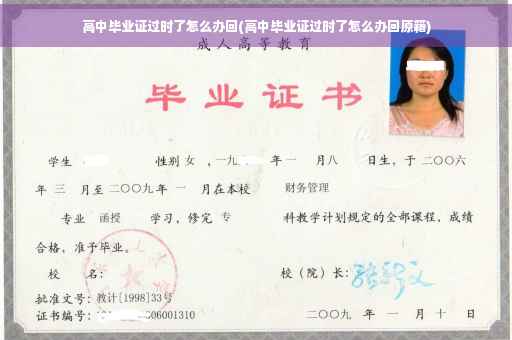 高中毕业证过时了怎么办回(高中毕业证过时了怎么办回原籍)
成人高等教育
毕业证书
学生 性别 女 ,一九 年 一 月 八 日生,于 二〇〇六
年 三 月至 二〇〇九 年 一 月在本校 财务管理
专业 函授 学习,修完 专 科教学计划规定的全部课程,成绩
合格,准予毕业。
校 名: 校(院)长:
批准文号:教计[1998]33号
证书编号: 06001310 二〇〇九 年 一 月 十 日